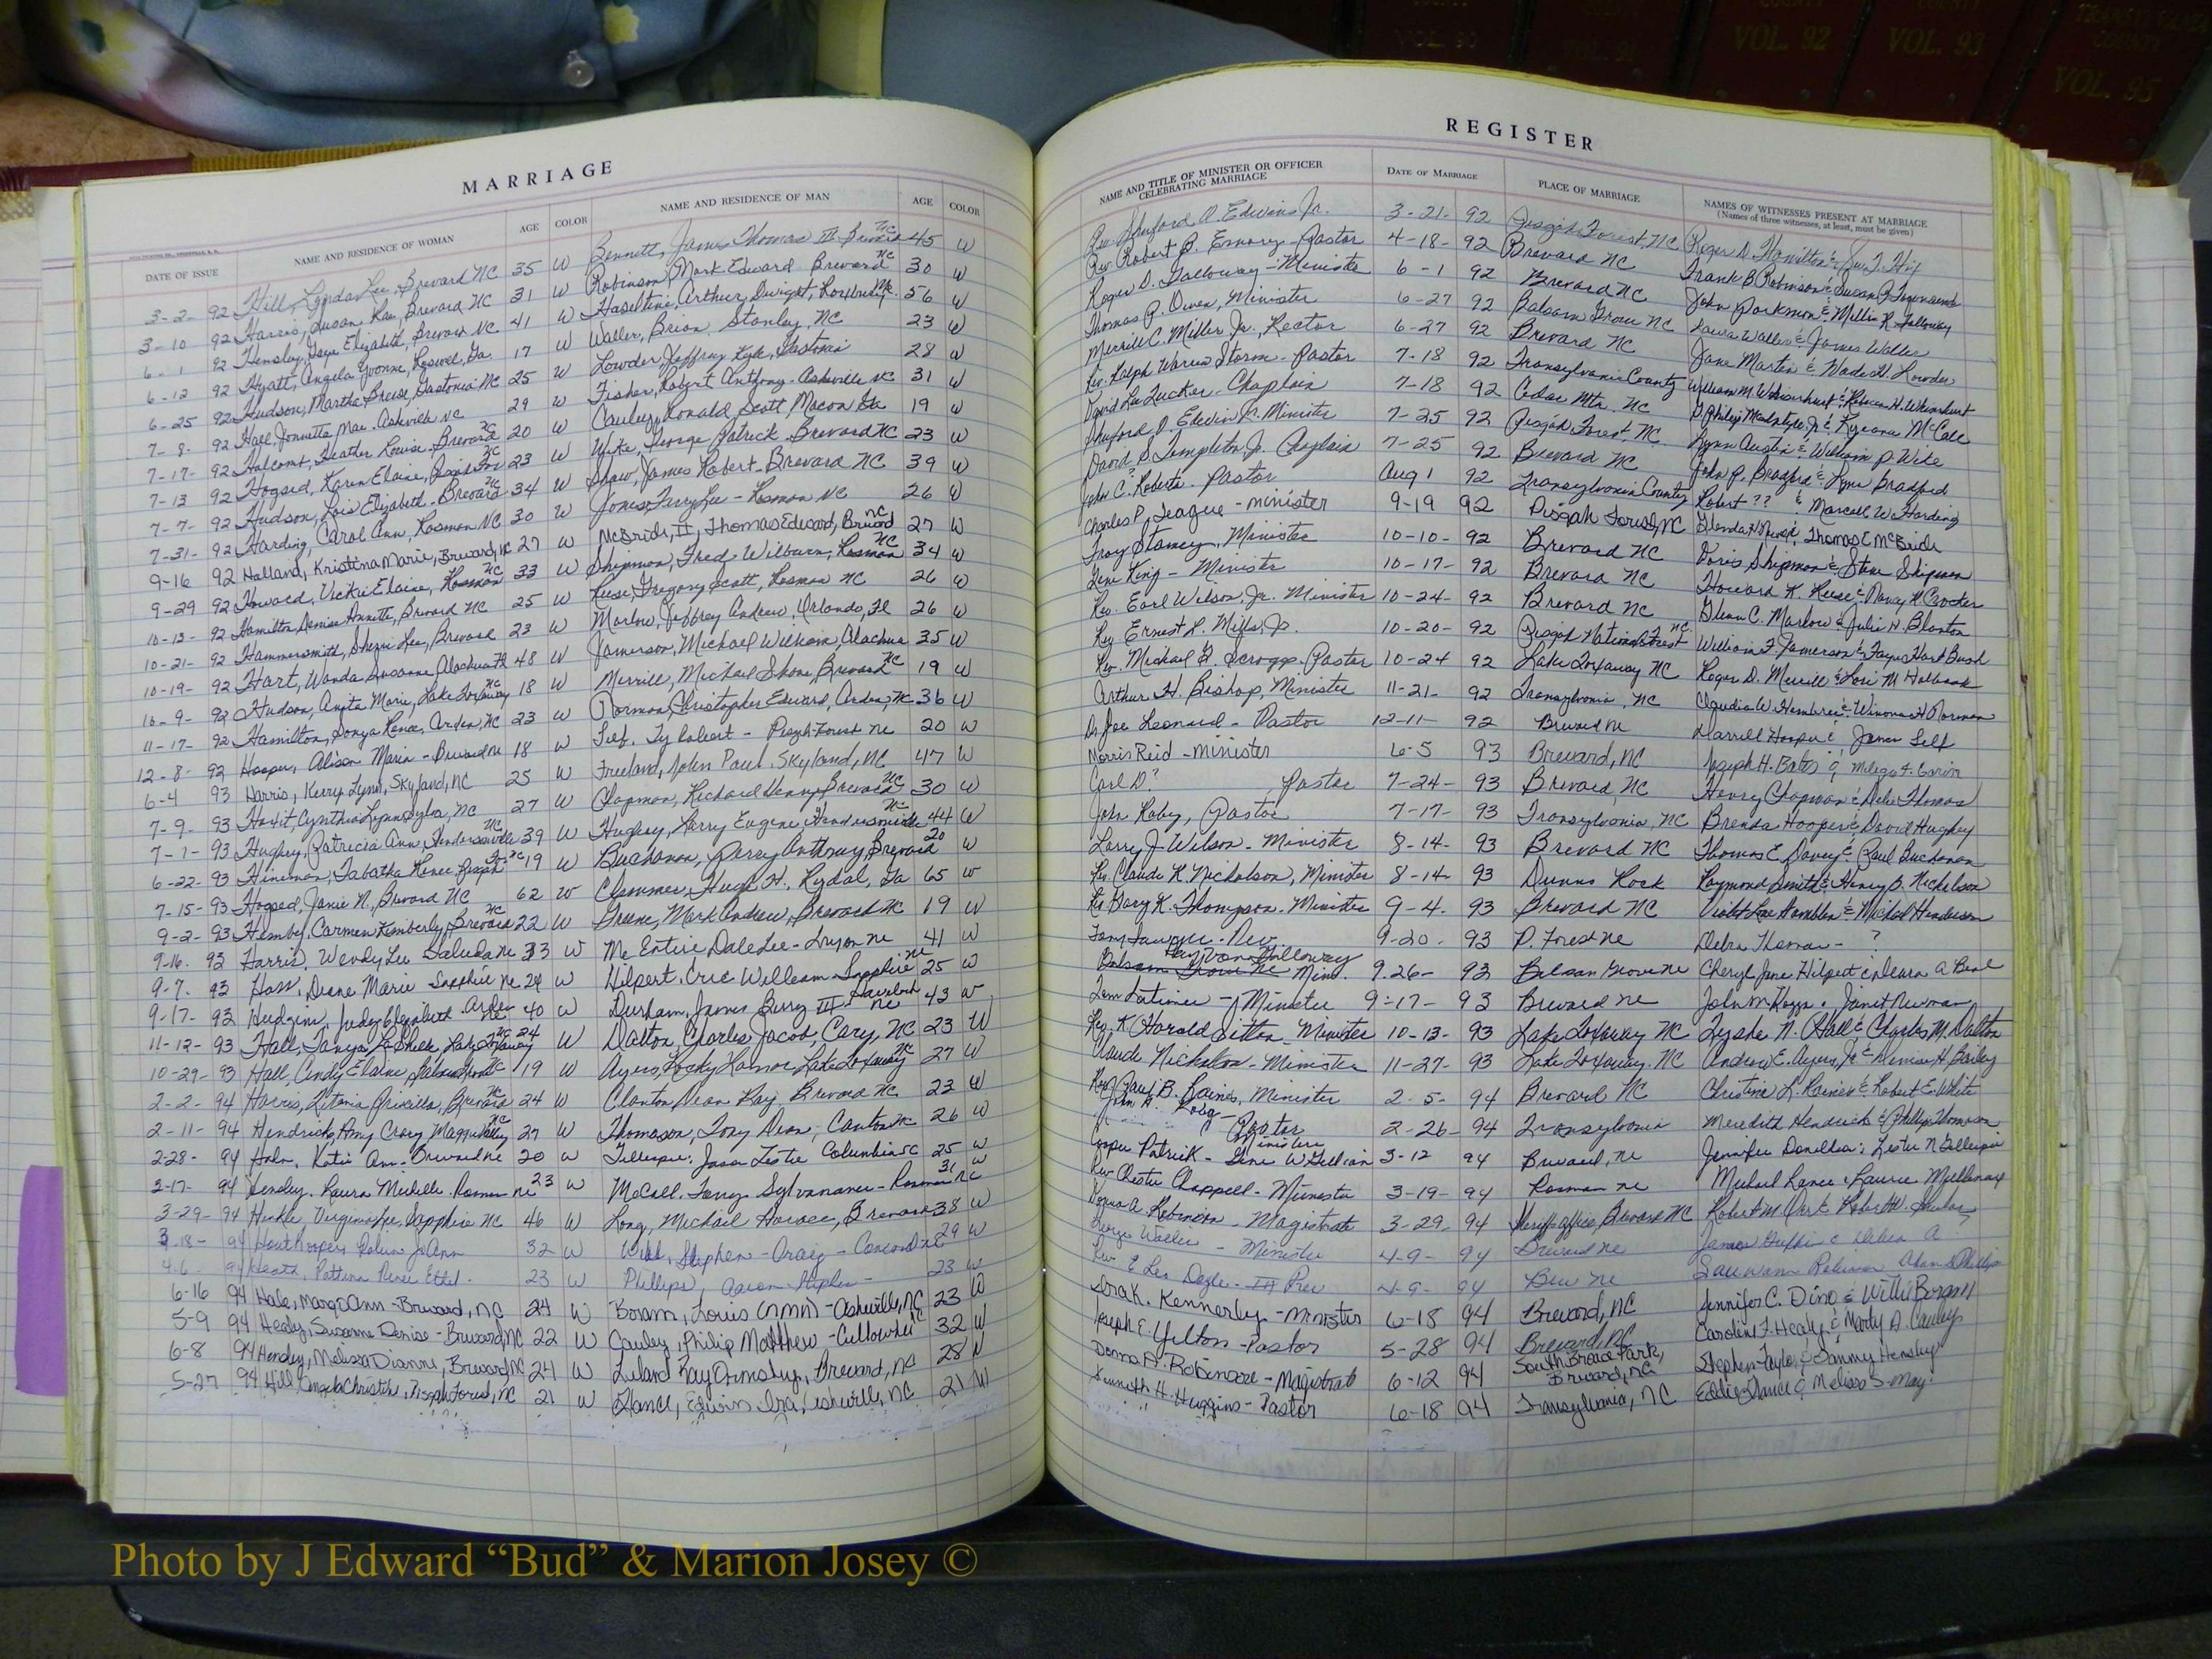 VOL. 92
VOL. 93
VOL. 95
MARRIAGE
DATE OF ISSUE
NAME AND RESIDENCE OF WOMAN
AGE
COLOR
NAME AND RESIDENCE OF MAN
AGE
COLOR
3-2- 92 Hill, Lynda Lee, Brevard NC 35 W Bennett, James Thomas III Brevard NC 45 W
3-10 92 Harris, Susan Rae, Brevard NC 31 W Robinson, Mark Edward Brevard NC 30 W
6-1 92 Tinsley, Gaye Elizabeth, Brevard NC 41 W Haseltine, Arthur Dwight, NC 56 W
6-12 92 Hyatt, Angela Yvonne, Roswell, Ga. 17 W Waller, Brian Stanley, NC 23 W
6-25 92 Hudson, Martha Breese Gastonia NC 25 W Lowder, Jeffrey Kyle, Gastonia 28 W
7-8- 92 Hall, Jonnetta Mae. Asheville NC 29 W Fisher, Robert Anthony - Asheville NC 31 W
7-17- 92 Holcomb, Heather Louise - Brevard NC 20 W Cauley, Ronald Scott Macon Ga 19 W
7-13 92 Hogsed, Karen Elaine, NC 23 W Wike, George Patrick Brevard NC 23 W
7-7- 92 Hudson, Lois Elizabeth - Brevard NC 34 W Shaw, James Robert - Brevard NC 39 W
7-31- 92 Harding, Carol Ann, Rosman NC 30 W Jones, Terry Lee - Rosman NC 26 W
9-16 92 Holland, Kristina Marie, Brevard, NC 27 W McBride, II, Thomas Edward, Brevard NC 27 W
9-29 92 Howard, Vickie Elaine, Rosman NC 33 W Shipman, Fred Wilburn, Rosman NC 34 W
10-13- 92 Hamilton, Denise Annette, Brevard NC 25 W Reese, Gregory Scott, Rosman NC 26 W
10-21- 92 Hammersmith, Sherri Lee, Brevard 23 W Marlow, Jeffrey Andrew, Orlando, Fl 26 W
10-19- 92 Hart, Wanda Susanne Alachua Fl 48 W Jamerson, Michael William, Alachua 35 W
10-9- 92 Hudson, Anita Marie, Lake Toxaway NC 18 W Merrill, Michael Shane, Brevard NC 19 W
11-17- 92 Hamilton, Sonya Renee, Arden, NC 23 W Norman, Christopher Edward, Arden, NC 36 W
12-8- 92 Hooper, Alison Maria - Brevard NC 18 W Self, Ty Robert - Pisgah Forest NC 20 W
6-4 93 Harris, Kerry Lynn, Skyland, NC 25 W Freeland, John Paul, Skyland, NC 47 W
7-9- 93 Hoxit, Cynthia Lynn, Sylva, NC 27 W Chapman, Richard Henry, Brevard NC 30 W
7-1- 93 Hughey, Patricia Ann, Hendersonville NC 39 W Hughey, Larry Eugene Hendersonville NC 44 W
6-22- 93 Heineman, Tabatha Renee, Pisgah NC 19 W Buchanan, Percy Anthony, Brevard 20 W
7-15- 93 Hogsed, Janie N., Brevard NC 62 W Clemmer, Hugh H., Rydal, Ga 65 W
9-2- 93 Hembel, Carmen Kimberly, Brevard NC 22 W Greene, Mark Andrew, Brevard NC 19 W
9-16. 93 Harris, Wendy Lee Saluda NC 33 W McEntire Dale Lee - Tryon NC 41 W
9-7. 93 Hass, Diane Marie Sapphire NC 24 W Hilpert, Eric William Sapphire NC 25 W
9-17- 93 Hudgins, Judy Elizabeth Arden NC 40 W Durham, James Berry III Havelock NC 43 W
11-12- 93 Hall, Tanya LaShelle, Lake Toxaway NC 24 W Dalton, Charles Jacob, Cary, NC 23 W
10-29- 93 Hall, Cindy Elaine, NC 19 W Ayers, Rocky Lake Toxaway NC 27 W
2-2- 94 Harris, Letonia Priscilla, Brevard NC 24 W Clanton, Dean Ray Brevard NC 23 W
2-11- 94 Hendricks, Amy Crary Maggie Valley NC 27 W Thomason, Tony Dean, Canton NC 26 W
2-28- 94 Hahn, Katie Ann. Brevard NC 20 W Gillespie, Jason Lestie Columbia SC 25 W
3-17- 94 Hensley, Laura Michelle. Rosman NC 23 W McCall, Terry Sylvananer - Rosman NC 31 W
3-29- 94 Hinkle, Virginia Lee, Sapphire NC 46 W Long, Michael Horace, Brevard 38 W
3-18- 94 Robin JoAnn 32 W Webb, Stephen - Craig - Concord NC 29 W
4-6- 94 Heath, Pattina Renee Ethel. 23 W Phillips, Aaron Stephen - 23 W
6-16 94 Hale, Margi Ann - Brevard, NC 24 W Boram, Louis (NMN) - Asheville, NC 23 W
5-9 94 Healy, Suzanne Denise - Brevard, NC 22 W Cauley, Philip Matthew - Cullowhee NC 32 W
6-8 94 Hensley, Melissa Dianne, Brevard NC 24 W Leland Ray Ormsby, Brevard, NC 28 W
5-27 94 Hill, Angela Christine, Pisgah Forest, NC 21 W Chance, Edwin Ira, Asheville, NC 21 W
REGISTER
NAME AND TITLE OF MINISTER OR OFFICER CELEBRATING MARRIAGE
DATE OF MARRIAGE
PLACE OF MARRIAGE
NAMES OF WITNESSES PRESENT AT MARRIAGE
(Names of three witnesses, at least, must be given)
Rev. Shuford D. Edwins Jr. 3-21- 92 Pisgah Forest, NC Roger D. Hamilton & T. Hix
Rev. Robert B. Emory - Pastor 4-18- 92 Brevard NC Frank B Robinson & Susan P. Townsend
Roger D. Galloway - Minister 6-1 92 Brevard NC John Parkman & Millie R. Galloway
Thomas R. Owen, Minister 6-27 92 Balsam Grove NC Laura Waller & James Waller
Merrill C. Miller Jr., Rector 6-27 92 Brevard NC Jane Martin & Wade H. Lowder
Rev. Ralph Warren Storm - Pastor 7-18 92 Transylvania County William M. Whisenhunt & Rebecca H. Whisenhunt
David Lee Tucker - Chaplain 7-18 92 Cedar Mtn. NC McCall
Shuford D. Edwins Jr. Minister 7-25 92 Pisgah Forest NC Lynn Austin & William P. Wike
David S. Templeton Jr. Chaplain 7-25 92 Brevard NC John P. Bradford & Lynn Bradford
John C. Roberts - Pastor Aug 1 92 Transylvania County Robert ?? & Marcell W. Harding
Charles P. Teague - minister 9-19 92 Pisgah Forest, NC Thomas E McBride
Troy Stamey, Minister 10-10- 92 Brevard NC Doris Shipman & Steve Shipman
Gene King - Minister 10-17- 92 Brevard NC Howard K. Reese & Nancy H. Crocker
Rev. Earl Wilson, Jr. Minister 10-24- 92 Brevard NC Glenn C. Marlow & Julie H. Blanton
Rev Ernest L. Mills, Jr. 10-20- 92 Pisgah National Forest NC William F. Jamerson & Faye Hart Bush
Rev. Michael G. Scroggs - Pastor 10-24 92 Lake Toxaway NC Roger D. Merrill & Lori M Holbrook
Arthur H. Bishop, Minister 11-21- 92 Transylvania, NC Claudia W. Hembree & Winona H. Norman
Dr. Joe Leonard - Pastor 12-11- 92 Brevard NC Darrell Hooper & James Self
Norris Reid - minister 6-5 93 Brevard, NC Joseph H. Bates &
Carl D? , Pastor 7-24- 93 Brevard, NC Henry Chapman & Thomas
John Roby, Pastor 7-17- 93 Transylvania, NC Brenda Hooper & David Hughey
Larry J. Wilson - Minister 8-14- 93 Brevard NC Thomas E. Davey & Paul Buchanan
Rev. Claude K. Nicholson, Minister 8-14- 93 Dunns Rock Raymond Smith & Henry B. Nicholson
Rev Gary K. Thompson - Minister 9-4- 93 Brevard NC Violet Lee Hamblen & Michel Henderson
Rev. 9-20- 93 P. Forest NC Debra Thomas - ?
Galloway Min. 9-26- 93 Balsam Grove NC Cheryl Jane Hilpert & Deana A Beal
Tom Latimer - Minister 9-17- 93 Brevard NC John M Janet Newman
Rev. K. Harold Sitton - Minister 10-13- 93 Lake Toxaway NC Lyshe N. Hall & Charles M. Dalton
Claude Nicholson - Minister 11-27- 93 Lake Toxaway, NC Andrew E. Ayers, Jr & Denise H. Bailey
Rev. Paul B. Raines, Minister 2-5- 94 Brevard NC Christine L. Raines & Robert E. White
John R. - Pastor 2-26- 94 Transylvania Meredith Hendricks & Phillip Thomason
Cooper Patrick - Gene W Gillian Ministers 3-12 94 Brevard, NC Jennifer Donellan; Lester N. Gillespie
Rev Chester Chappell - Minister 3-19- 94 Rosman NC Michael Rance & Laurie
Donna A. Robinson - Magistrate 3-29- 94 Sheriff office, Brevard NC Robert M.
George Waller - Minister 4-9- 94 Brevard NC James
Rev E Les Dogle - 4-9- 94 Brev NC Robinson Phillips
Kennerly - Minister 6-18 94 Brevard, NC Jennifer C. Dino & Willie Boram
Joseph E. Yelton - Pastor 5-28 94 Brevard, NC Caroline F. Healy & Marty A. Cauley
Donna A. Robinson - Magistrate 6-12 94 South Broad Park, Brevard, NC Stephen Taylor & Sammy Hensley
Kenneth H. Huggins - Pastor 6-18 94 Transylvania, NC Eddie Chance & Melissa S. May
Photo by J Edward “Bud” & Marion Josey ©